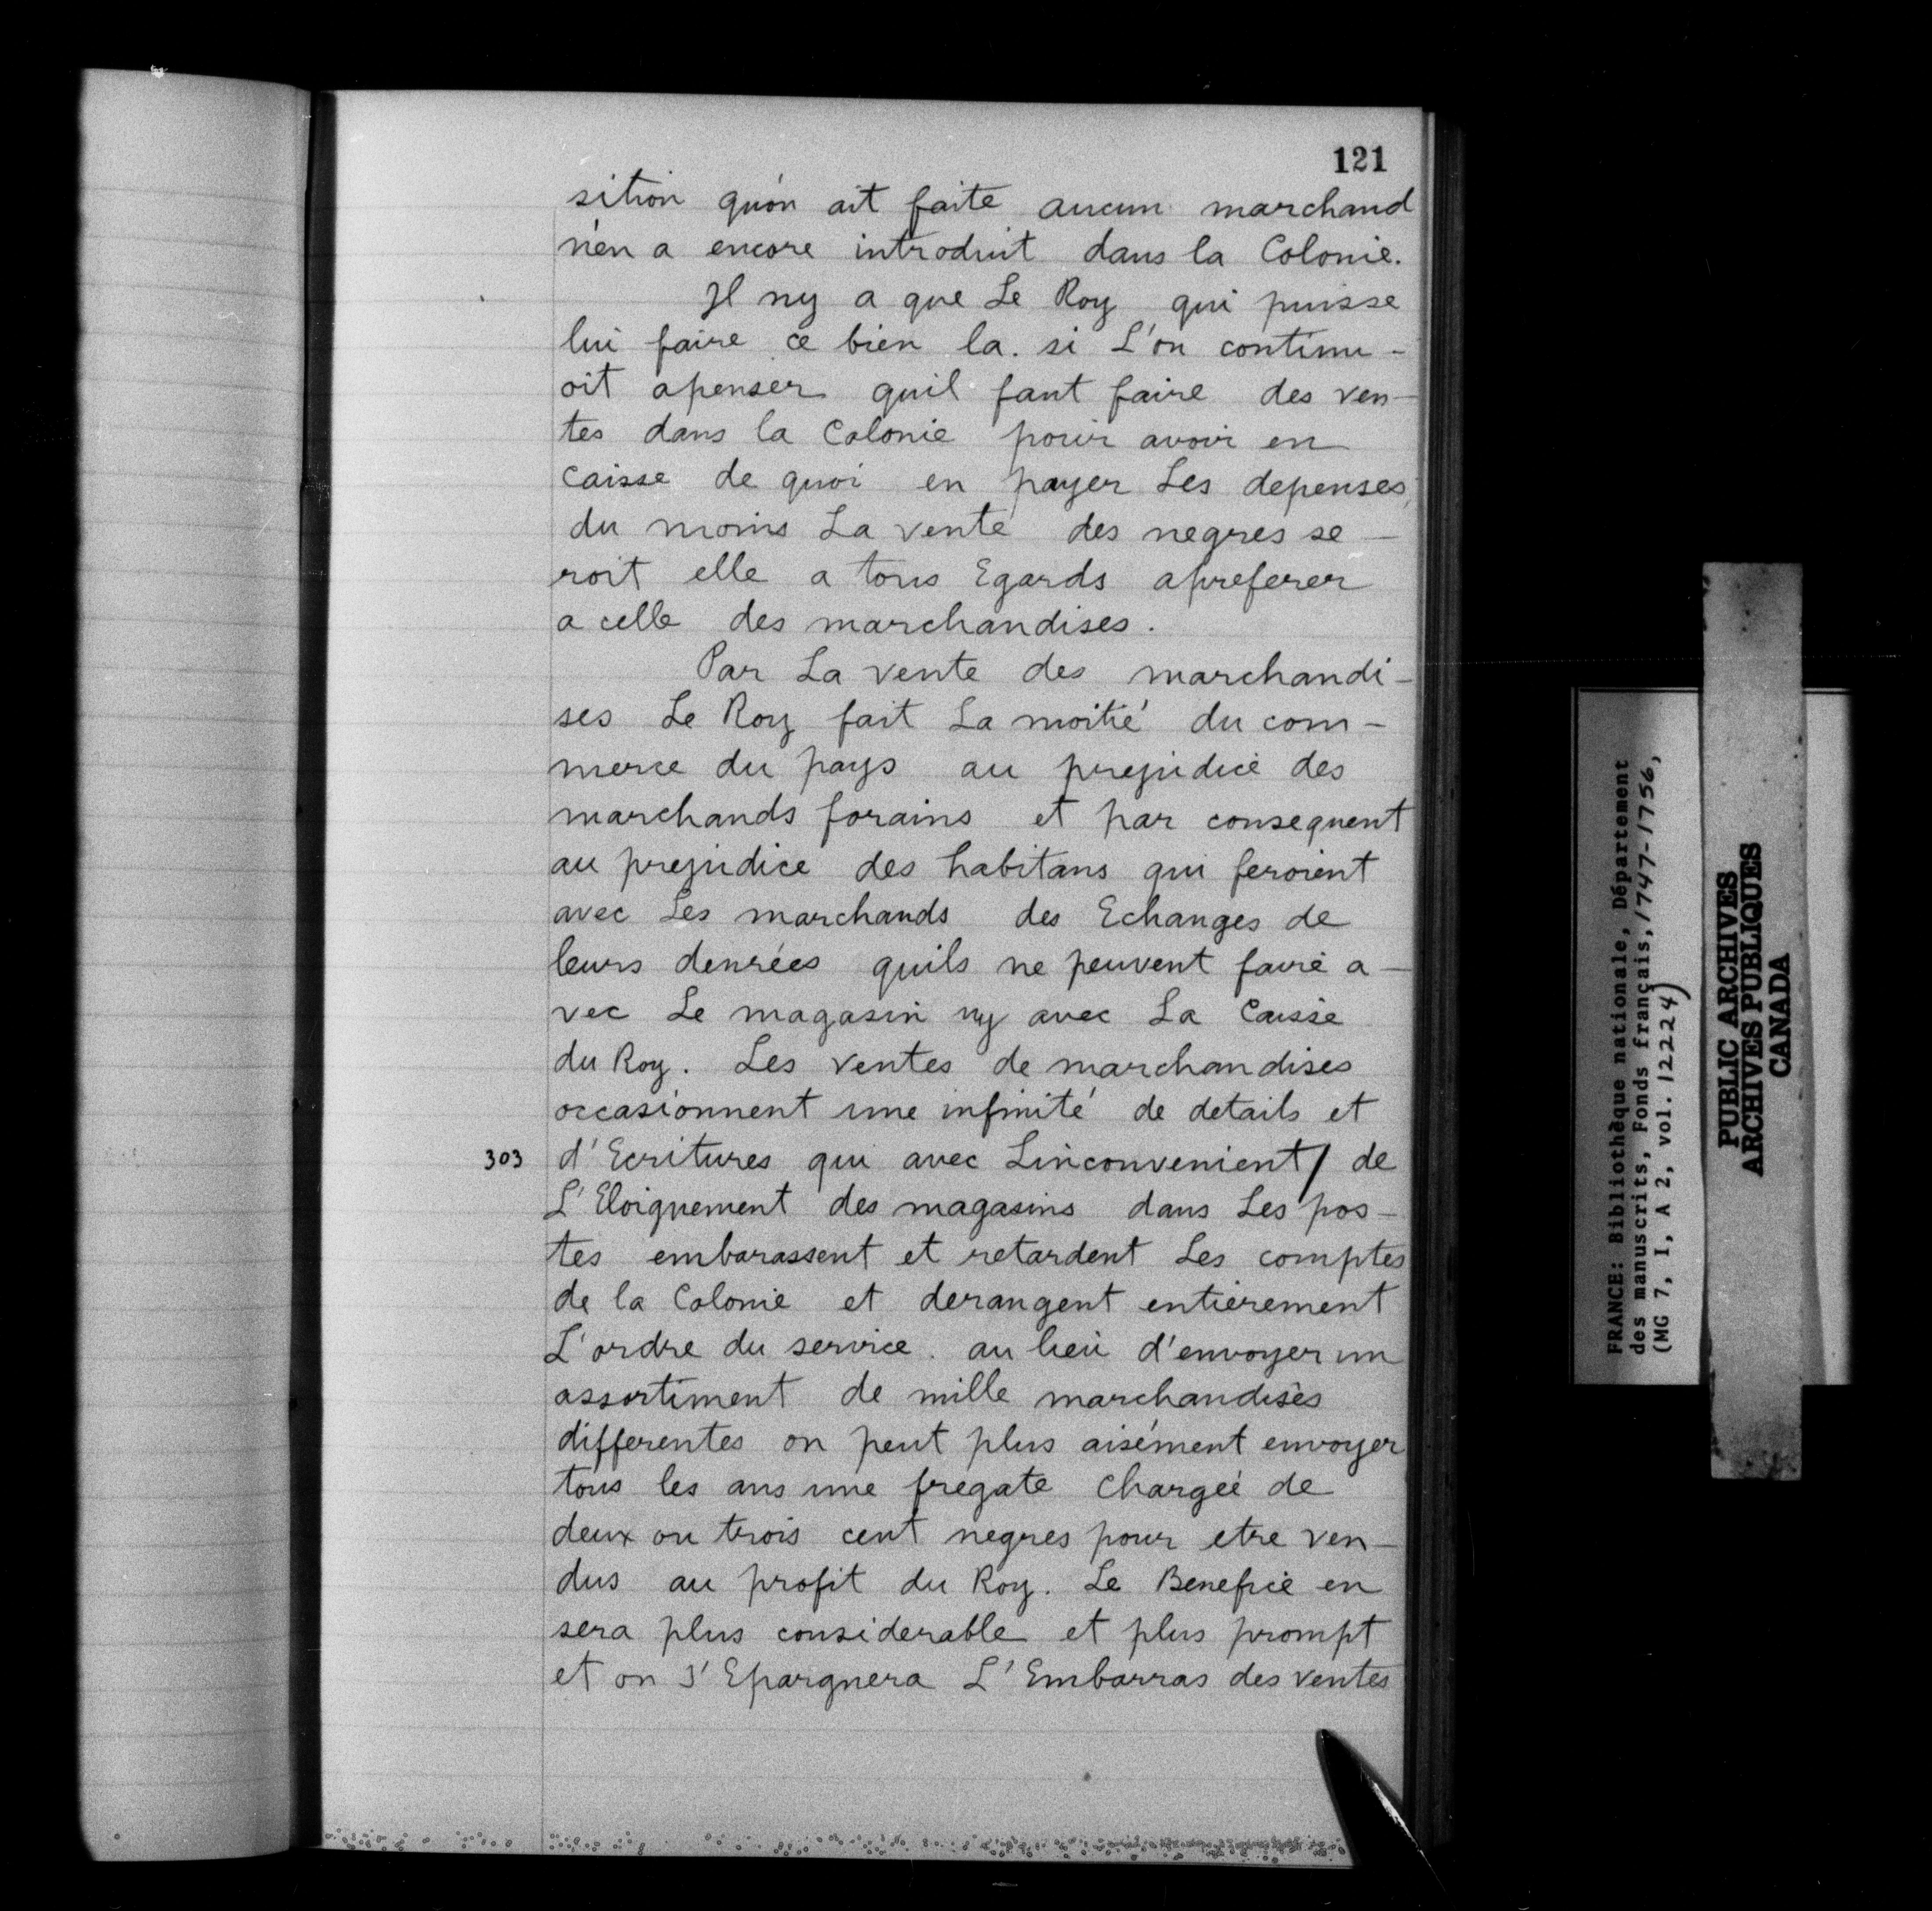 121
sition qu'on ait faite aucun marchand
n'en a encore introduit dans la Colonie.
Il ny a que Le Roy qui puisse
lui faire ce bien la. si L'on continu-
oit apenser quil faut faire des ven-
tes dans la Colonie pour avoir en
caisse de quoi en payer Les depenses,
du moins La vente des negres se-
roit elle a tous Egards apreferer
a celle des marchandises.
Par La vente des marchandi-
ses Le Roy fait La moitié du com-
merce du pays au prejudice des
marchands forains et par consequent
au prejudice des habitans qui feroient
avec Les marchands des Echanges de
leurs denrées quils ne peuvent faire a-
vec Le magasin ny avec La Caisse
du Roy. Les ventes de marchandises
occasionnent une infinité de details et
303 d'Ecritures qui avec Linconvenient / de
L'Eloignement des magasins dans Les pos-
tes embarassent et retardent Les comptes
de la Colonie et derangent entierement
L'ordre du service. au lieu d'envoyer un
assortiment de mille marchandises
differentes on peut plus aisément envoyer
tous les ans une fregate chargée de
deux ou trois cent negres pour etre ven-
dus au profit du Roy. Le Benefice en
sera plus considerable et plus prompt
et on s'Epargnera L'Embarras des ventes
FRANCE: Bibliothèque nationale, Département
des manuscrits, Fonds français, 1747-1756,
(MG 7, I, A 2, vol. 12224)
PUBLIC ARCHIVES
ARCHIVES PUBLIQUES
CANADA